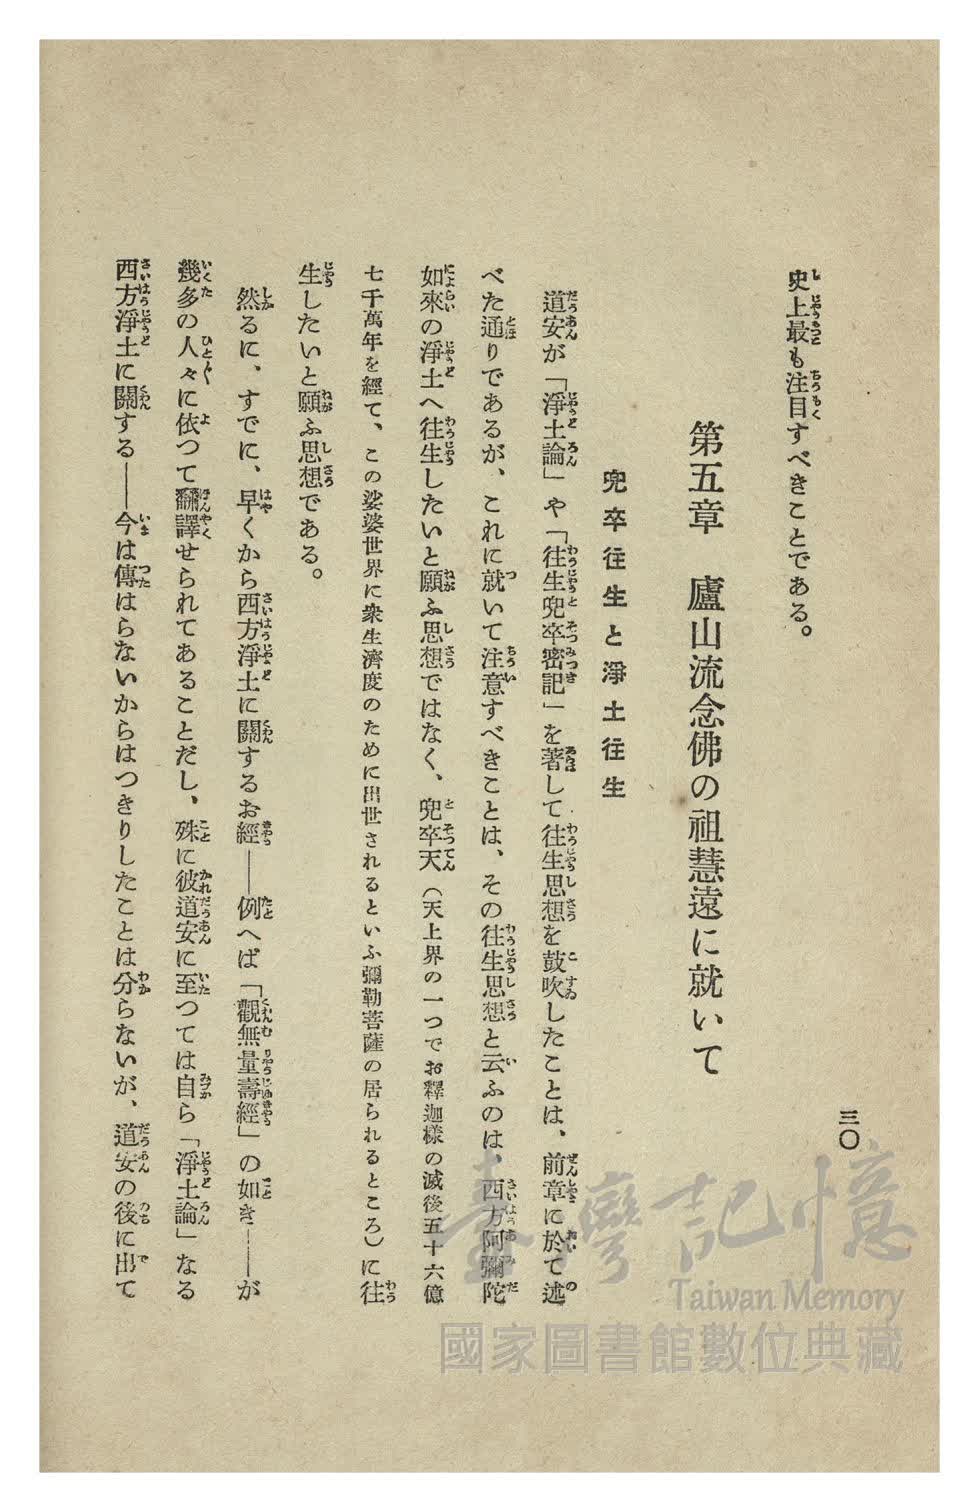 三〇
史上最も注目すべきことである。
第五章　廬山流念佛の祖慧遠に就いて
兜卒往生と淨土往生
道安が「淨土論」や「往生兜卒密記」を著して往生思想を鼓吹したことは、前章に於て述
べた通りであるが、これに就いて注意すべきことは、その往生思想と云ふのは、西方阿彌陀
如來の淨土へ往生したいと願ふ思想ではなく、兜卒天（天上界の一つでお釋迦樣の滅後五十六億
七千萬年を經て、この娑婆世界に衆生濟度のために出世されるといふ彌勒菩薩の居られるところ）に往
生したいと願ふ思想である。
然るに、すでに、早くから西方淨土に關するお經――例へば「觀無量壽經」の如き――が
幾多の人々に依つて飜譯せられてあることだし、殊に彼道安に至つては自ら「淨土論」なる
西方淨土に關する――今は傳はらないからはつきりしたことは分らないが、道安の後に出て
臺灣記憶
Taiwan Memory
國家圖書館數位典藏